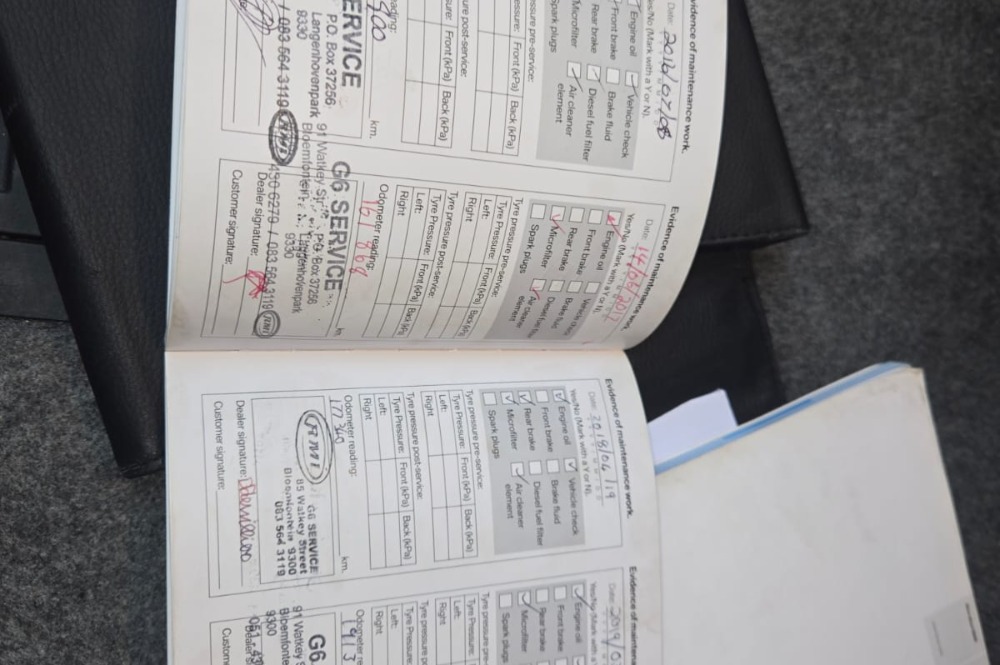 Evidence of maintenance work.
Date: 2016/07/08
Yes/No (Mark with a Y or N).
Engine oil Vehicle check
Front brake Brake fluid
Rear brake Diesel fuel filter
Microfilter Air cleaner
Spark plugs element
Tyre pressure pre-service:
Front (kPa) Back (kPa)
Tyre pressure post-service:
Front (kPa) Back (kPa)
km.
SERVICE
P.O. Box 37256
Langenhovenpark
9330
083 564 3119
Evidence of maintenance work.
Date:
Yes/No (Mark with a Y or N).
Engine oil Vehicle check
Front brake Brake fluid
Rear brake Diesel fuel filter
Microfilter Air cleaner
Spark plugs element
Tyre pressure pre-service:
Tyre Pressure: Front (kPa) Back (kPa)
Left:
Right
Tyre pressure post-service:
Tyre Pressure: Front (kPa) Back (kPa)
Left:
Right
Odometer reading:
161 868 km
G6 SERVICE
91 Watkey Str P.O. Box 37256
Bloemfontein Langenhovenpark
9330
430 6279 / 083 564 3119
Dealer signature:
Customer signature:
Evidence of maintenance work.
Date: 2018/04/19
Yes/No (Mark with a Y or N).
Engine oil Vehicle check
Front brake Brake fluid
Rear brake Diesel fuel filter
Microfilter Air cleaner
Spark plugs element
Tyre pressure pre-service:
Tyre Pressure: Front (kPa) Back (kPa)
Left:
Right
Tyre pressure post-service:
Tyre Pressure: Front (kPa) Back (kPa)
Left:
Right
Odometer reading:
177 340 km.
RMI
G6 SERVICE
85 Watkey Street
Bloemfontein 9300
083 564 3119
Dealer signature:
Customer signature:
Evidence of maintenance
Date: 2019/0
Yes/No (Mark with a
Engine oil
Front brake
Rear brake
Microfilter
Spark plugs
Tyre pressure pre-se
Tyre Pressure:
Left:
Right
Tyre pressure po
Tyre Pressure:
Left:
Right
Odometer re
G6
91 Watkey S
Bloemfonte
9300
051 - 43